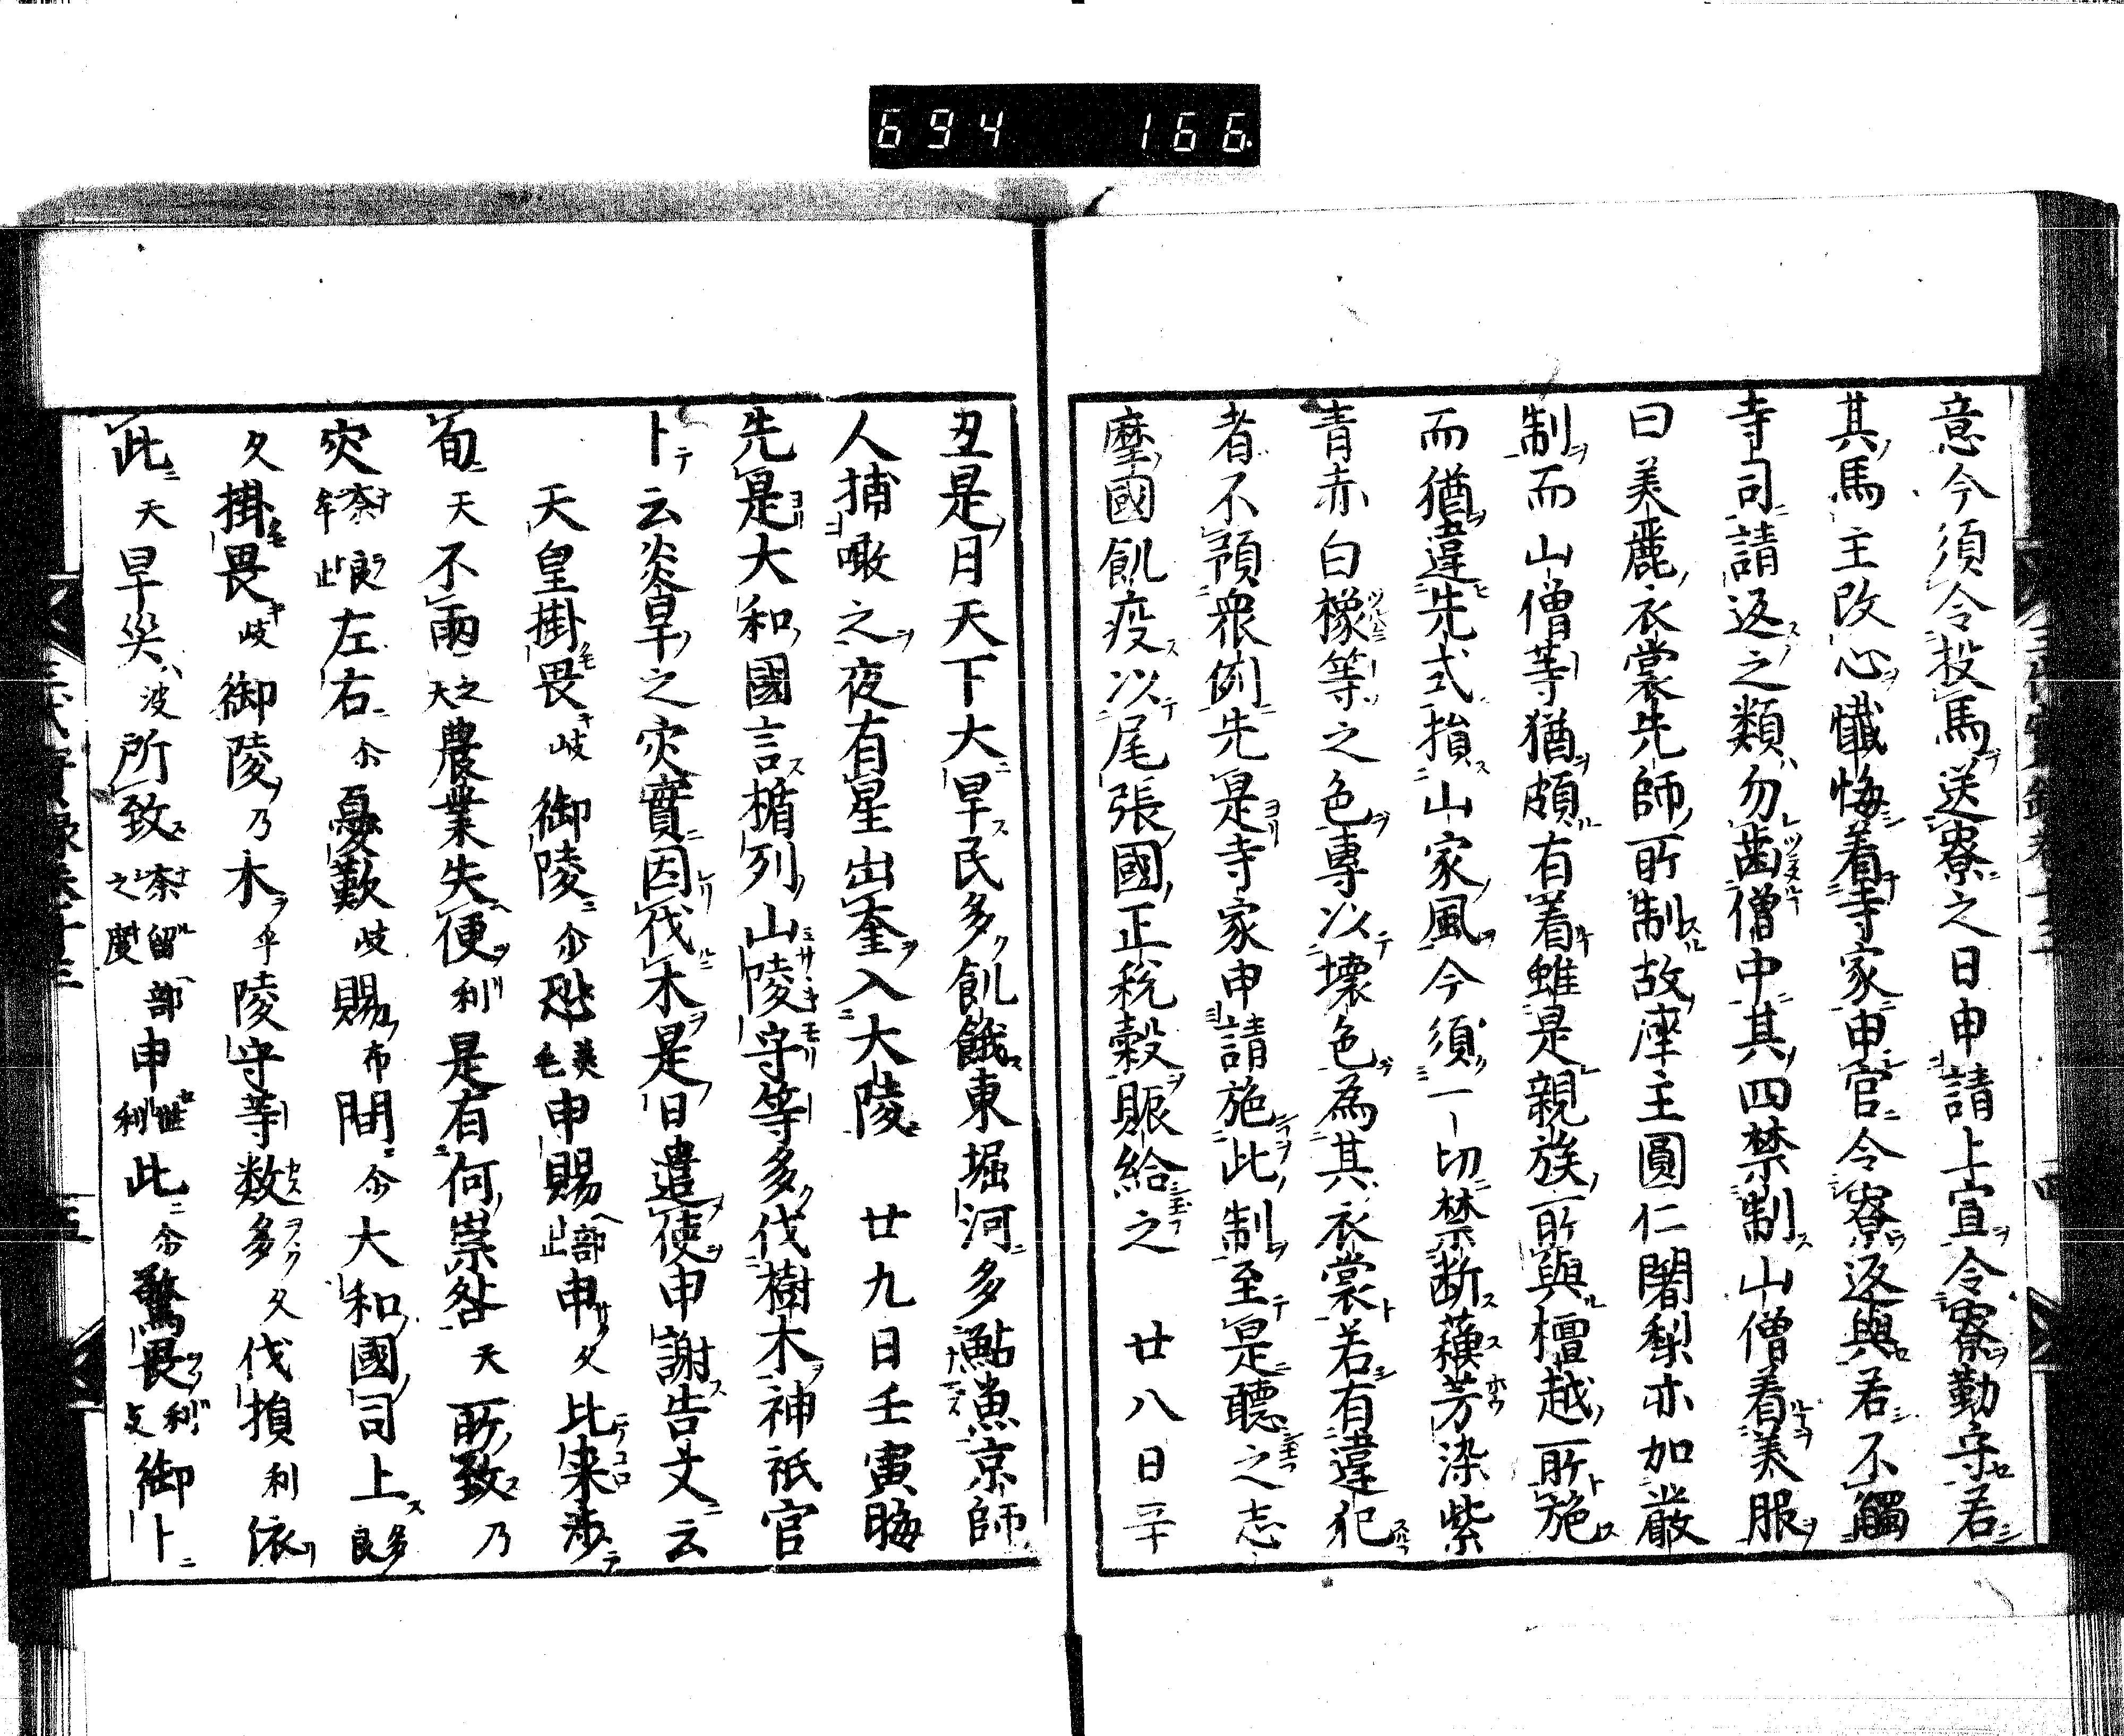 694 166
意今須令投馬送寮之日申請上宣令寮勤守若
其馬主改心懺悔着寺家申官令寮返與若不觸
寺司請返之類勿歯僧中其四禁制山僧着美服
曰美麗衣裳先師所制故座主圓仁闍梨亦加嚴
制而山僧等猶頗有着雖是親族所與檀越所施
而猶違先式損山家風今須一切禁断蘓芳染紫
青赤白橡等之色專以壊色為其衣裳若有違犯
者不預衆例先是寺家申請施此制至是聽之志
摩國飢疫以尾張國正税穀賑給之 廿八日辛
丑是月天下大旱民多飢餓東堀河多鮎魚京師
人捕噉之夜有星出奎入大陵 廿九日壬寅晦
先是大和國言楯列山陵守等多伐樹木神祇官
卜云炎旱之灾實因伐木是日遣使申謝告文云
天皇掛畏岐御陵尒恐美毛申賜部止申久比来渉
旬天不雨之天農業失便利是有何祟咎天所致乃
灾奈良牟止左右尒憂歎岐賜布間尒大和國司上多良
久掛畏岐御陵乃木乎陵守等数多久伐損利依
此天旱災波所致奈留部之度申世利此尒驚畏利天御卜